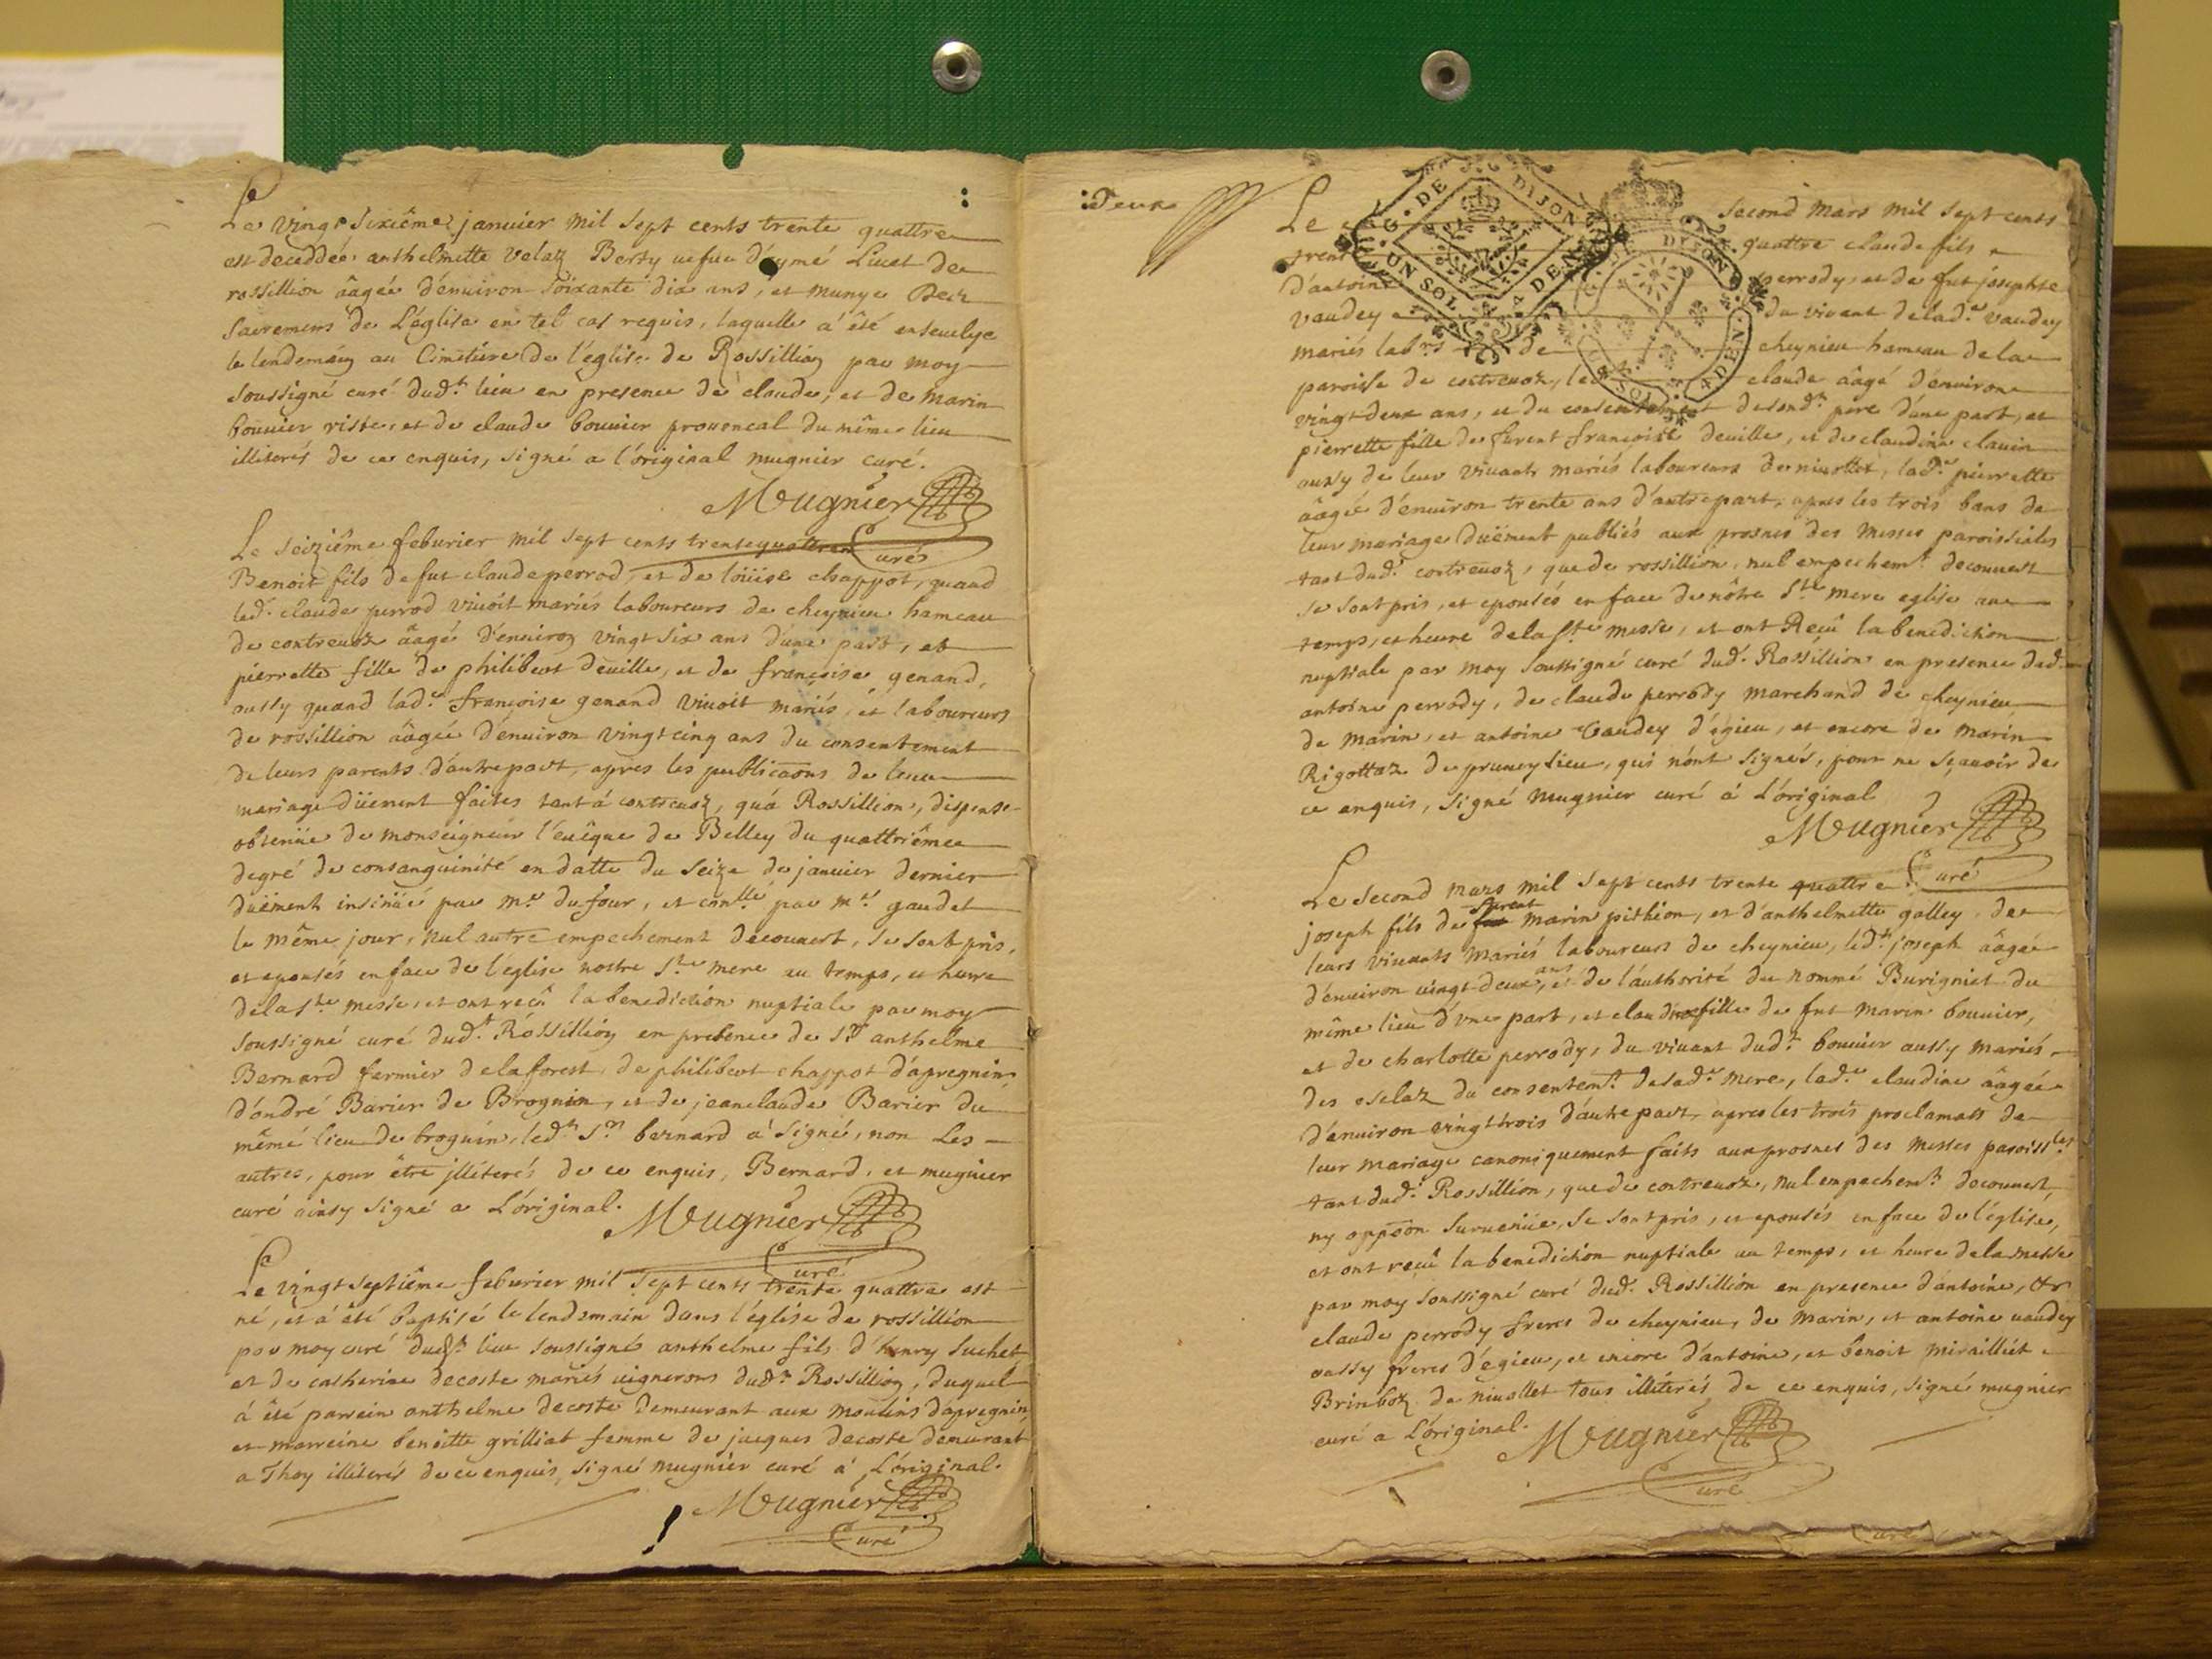 Le vingt sixiême janvier mil sept cents trente quattre
est deceddée anthelmette velat Berty uefue d'aymé Liuet de
rossillion âagée d'enuiron soixante dix ans, et munye Des
sacremens de L'église en tel cas requis, laquelle a'été enseuelye
le lendemain au Cimetiere de l'église de Rossillion par moy
soussigné curé dud.t lieu en presence de claude, et de marin
bouuier riste, et de claude bouuier prouencal du même lieu
illiterés de ce enquis, signé a l'original mugnier curé.
Mugnier
Curé
Le seiziême feburier mil sept cents trente quattre
Benoit fils de fut claude perrod, et de loüise chappot, quand
led. claude perrod viuoit mariés laboureurs de cheynieu hameau
de contreuoz âagé d'enuiron vingt six ans d'une part, et
pierrette fille de philibert deuille, et de françoise genand,
aussy quand lad.e françoise genand viuoit mariés, et laboureurs
de rossillion âagée d'enuiron vingt cinq ans du consentement
de leurs parents d'autre part, apres les publicaons de leur
mariage düement faites tant á contreuoz, qu'á Rossillion, dispense
obtenüe de monseigneur l'euêque de Belley du quattriême
degré de consanguinité en datte du seize de januier dernier
düement insinüé par m.e dufour, et con.llé par m.e gaudet
le même jour, nul autre empechement decouuert, se sont pris,
et epousés en face de l'église nostre s.te mere au temps, et heure
de la s.te messe, et ont reçû la benediction nuptiale par moy
soussigné curé dud.t Rossillion en presence de s.r anthelme
Bernard fermier de la forest, de philibert chappot d'apregnin
d'andré Barier de Brognin, et de jeanclaude Barier du
même lieu de brognin, led.t s.r bernard a' signé, non Les
autres, pour être jlliterés de ce enquis, Bernard, et mugnier
curé ainsy signé a L'original.
Mugnier
Curé
Le vingt septiême feburier mil sept cents trente quattre est
né, et a' été baptisé le lendemain dans l'église de rossillion
par moy curé dud.t lieu soussigné anthelme fils d'henry suchet
et de catherine decoste mariés uignerons dud.t Rossillion, duquel
á été parrein anthelme decoste demeurant aux moulins d'apregnin,
et marreine benoitte grilliat femme de jacques decoste demeurant
a Thoy illiterés de ce enquis, signé mugnier curé a' L'original.
Mugnier
Curé
:Deux
Le second mars mil sept cents
trent quattre claude fils
d'antoine perrody, et de fut josephte
vaudey du vivant de lad.e vaudey
mariés lab.rs de cheynieu hameau de la
paroisse de contreuoz, led claude âagé d'enuiron
vingt deux ans, et du consentement de sond.t pere d'une part, et
pierrette fille de furent françoise deuille, et de claudine clauin
aussy de leur viuant mariés laboureurs de niuollet, lad.e pierrette
âagée d'enuiron trente ans d'autre part, apres les trois bans de
leur mariage düement publiés aux prosnes des messes paroissiales
tant dud.t contreuoz, que de rossillion, nul empechem.t decouuert
se sont pris, et epousés en face de nôtre s.te mere eglise au
temps, et heure de la s.te messe, et ont Reçû la benediction
nuptiale par moy soussigné curé dud.t Rossillion en presence dud.
antoine perrody, de claude perrody marchand de cheynieu
de marin, et antoine Vaudey d'égieu, et encore de marin
Rigottaz de pruneylieu, qui n'ont signés, pour ne sçauoir de
ce enquis, signé mugnier curé á L'original
Mugnier
Curé
Le second mars mil sept cents trente quattre
joseph fils de furent marin pithion, et d'anthelmette galley de
leurs viuants mariés laboureurs de cheynieu, led.t joseph âagé
d'enuiron uingt deux ans, et de l'authorité du nommé Burigniet du
même lieu d'une part, et claudine fille de fut marin bouuier,
et de charlotte perrody, du viuant dud.t bouuier aussy mariés
des eselaz du consentem.t de sad.e mere, lad.e claudine âagée
d'enuiron vingt trois d'autre part, apres les trois proclamats de
leur mariage canoniquement faits aux prosnes des messes paroiss.les
tant dud.t Rossillion, que de contreuoz, nul empechem.t decouuert,
ny oppoon suruenüe, se sont pris, et epousés en face de l'église,
et ont reçû la benediction nuptiale au temps, et heure de la messe
par moy soussigné curé dud.t Rossillion en presence d'antoine, &
claude perrody freres de cheynieu, de marin, et antoine uaudey
aussy freres d'égieu, et encore d'antoine, et benoit miraillet
Brinboz de niuollet tous illiterés de ce enquis, signé mugnier
curé a L'original.
Mugnier
Curé
G. DE DIJON
UN SOL 4 DEN.
G. DE DIJON
UN SOL 4 DEN.